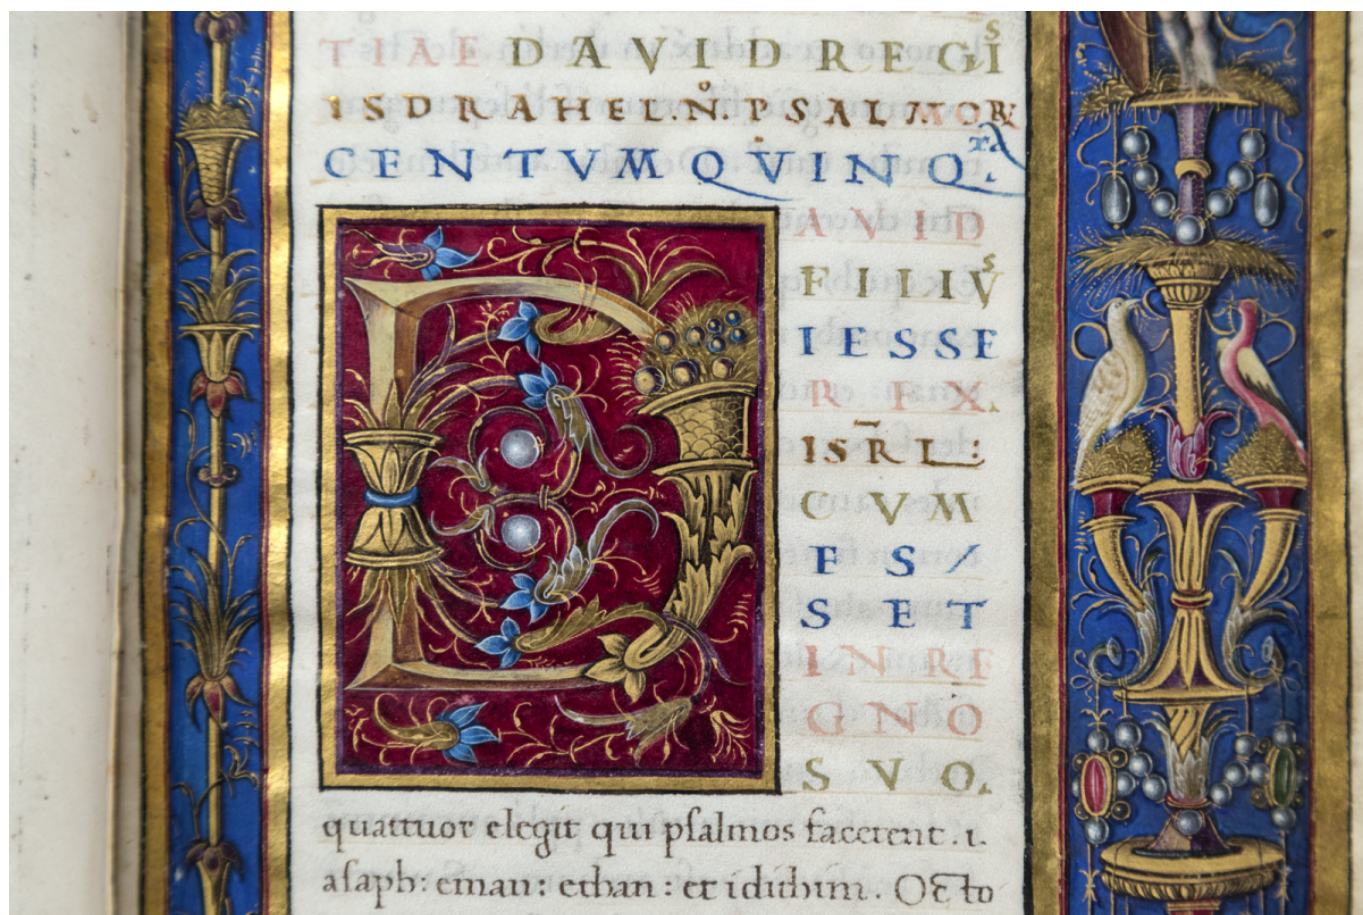 TIAE DAVID REGIS
ISDRAHEL.N̊.PSALMOꝜ
CENTVM QVINQ.ᵗᵃ
DAVID
FILIVˢ
IESSE
REX.
ISR̄L:
CVM
ES/
SET
IN RE
GNO
SVO.
quattuor elegit qui pſalmos facerent .i.
aſaph: eman: ethan: et idithim. Octo